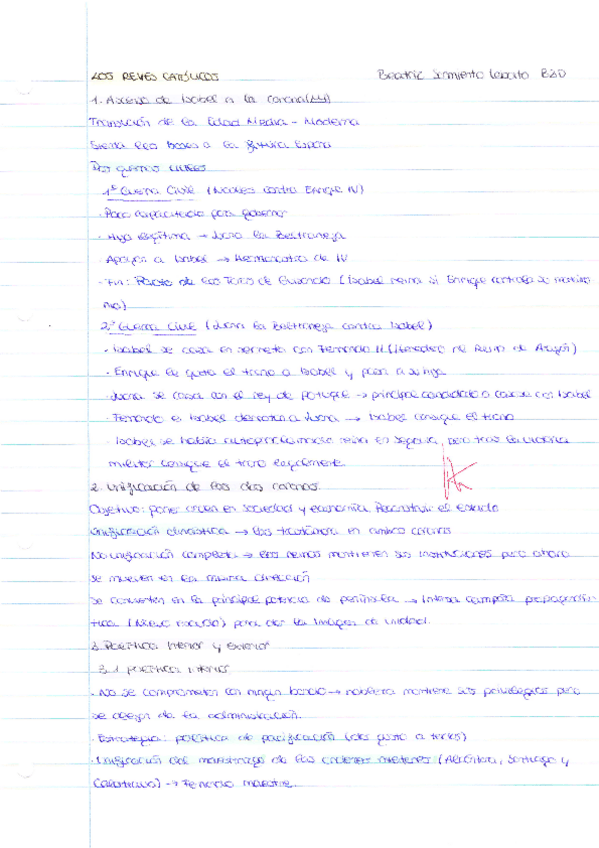 LOS REYES CATÓLICOS Beatriz Sarmiento B2D
1. Ascenso de Isabel a la corona
Transición de la Edad Media - Moderna
Sienta las bases a la futura España
Dos guerras civiles
1ª Guerra Civil (Nobles contra Enrique IV)
· Poca capacitación para gobernar
· Hija ilegítima → Juana la Beltraneja
· Apoyan a Isabel → Hermanastra de IV
· Fin: Pacto de los Toros de Guisando (Isabel reina si Enrique controla su matrimo
nio)
2ª Guerra Civil (Juana la Beltraneja contra Isabel)
· Isabel se casa en secreto con Fernando II (Heredero del Reino de Aragón)
· Enrique le quita el trono a Isabel y pasa a su hija
· Juana se casa con el rey de Portugal → principal candidato a casarse con Isabel
· Fernando e Isabel derrotan a Juana → Isabel consigue el trono
· Isabel se había autoproclamado reina en Segovia, pero tras la victoria
militar consigue el trono legalmente.
2. Unificación de las dos coronas.
Objetivo: poner orden en sociedad y economía. Reconstruir el Estado
Unificación dinástica → los Trastámara en ambas coronas
No unificación completa → los reinos mantienen sus instituciones pero ahora
se mueven en la misma dirección
Se convierten en la principal potencia de península → Intensa campaña propagandís
tica para dar la imagen de unidad.
3. Política interior y exterior
3.1 política interior
· No se comprometen con ningún bando → nobleza mantiene sus privilegios pero
se alejan de la administración.
· Estrategia: política de pacificación (dar gusto a todos)
· Unificación del maestrazgo de las órdenes militares (Alcántara, Santiago y
Calatrava) → Fernando maestre.